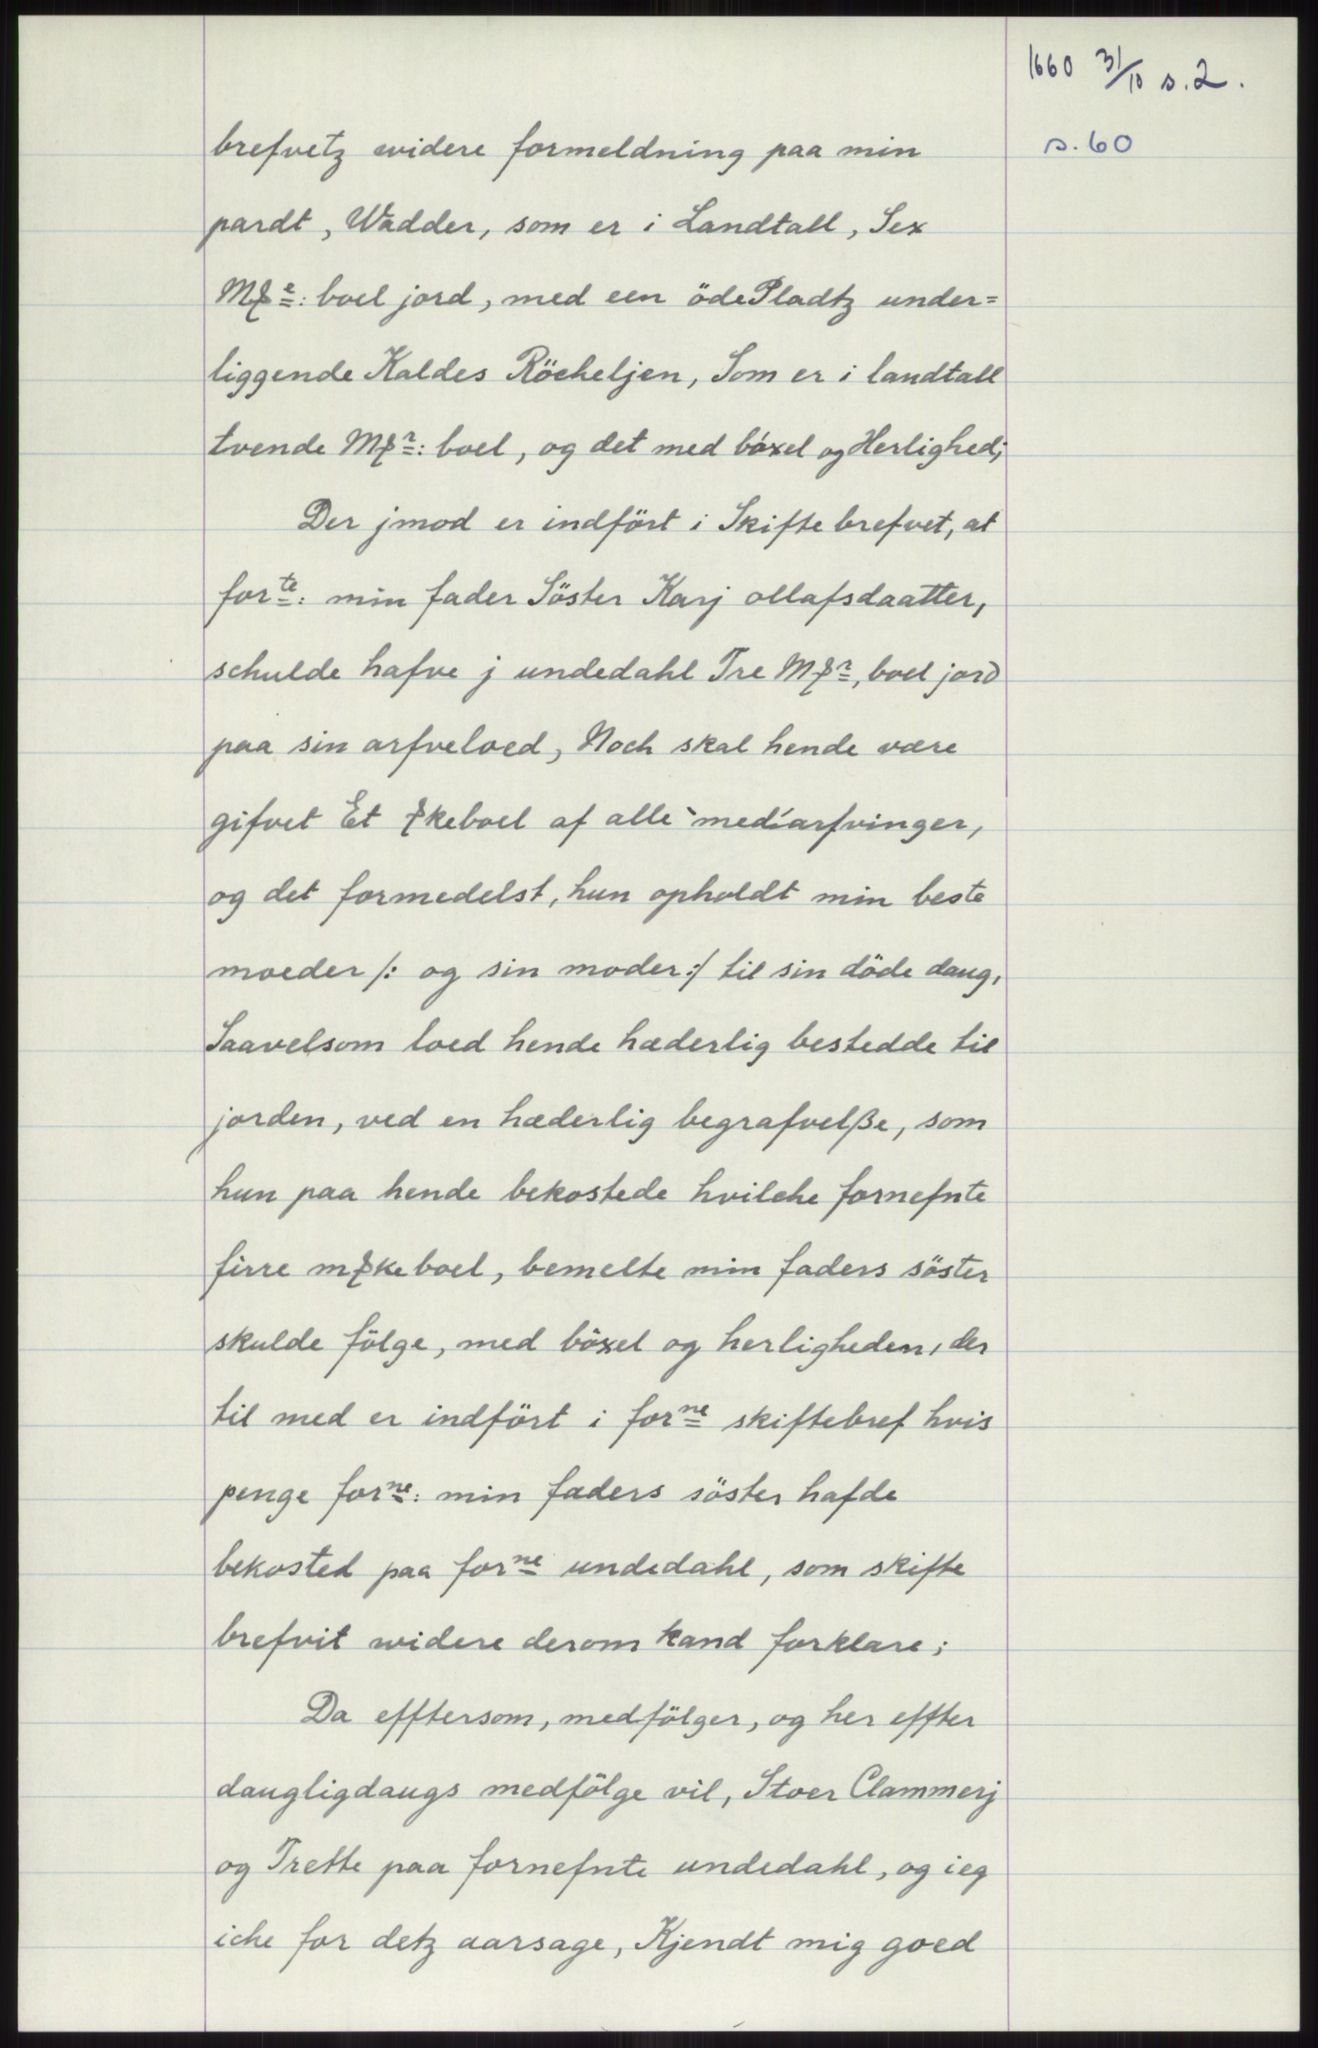 1660 31/10 s. 2.
s. 60
brefvetz widere formeldning paa min
pardt, Wadder, som er i Landtall, Sex
M₰e: boel jord, med een öde Pladtz under=
liggende Kaldes Röcheljen, Som er i landtall
tvende M₰r: boel, og det med böxel og Herlighed;
Der jmod er indfört i Skifte brefvet, at
forte: min fader Söster Karj ollafsdaatter,
schulde hafve j undedahl Tre M₰r, boel jord
paa sin arfveloed, Noch skal hende være
gifvet Et ₰keboel af alle medarfvinger,
og det formedelst, hun opholdt min beste
moeder /: og sin moder :/ til sin döde daug,
Saavelsom loed hende hæderlig bestedde til
jorden, ved en hæderlig begrafvelße, som
hun paa hende bekostede hvilche fornefnte
firre m₰ke boel, bemelte min faders söster
skulde fölge, med böxel og herligheden, der
til med er indfört i forne skiftebref hvis
penge forne: min faders söster hafde
bekosted paa forne undedahl, som skifte
brefvit widere derom kand forklare;
Da efftersom, medfölger, og her effter
daugligdaugs medfölge vil, Stoer Clammerj
og Trette paa fornefnte undedahl, og ieg
iche for detz aarsage, Kjendt mig goed